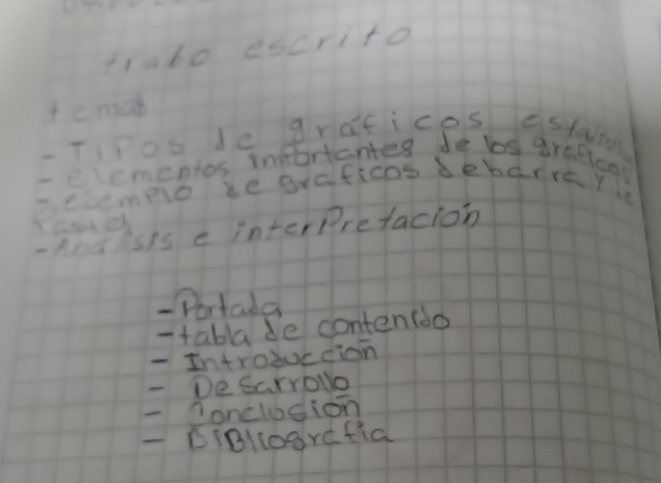 trabo escrito
temas
- Tipos de gráficos
- elementos importantes de los graficos
- ejemplo de graficos de barra y
- Analisis e interpretación
- Portada
- tabla de contenido
- Introducción
- Desarrollo
- Conclusión
- Bibliografia